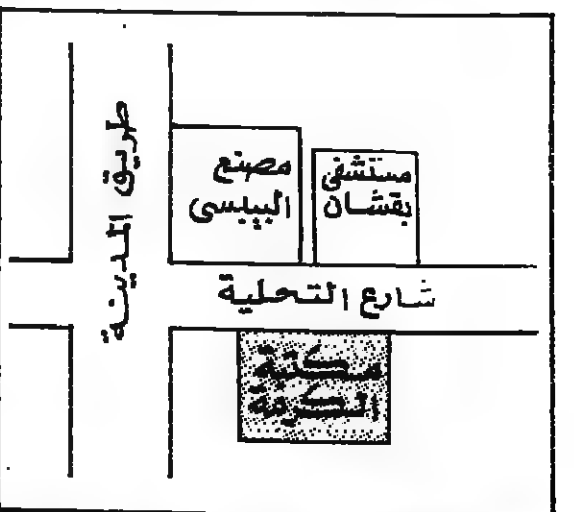 طريق المدينة
مصنع
البيبسى
مستشفى
بقشان
شارع التحلية
مكتبة
الكرمة